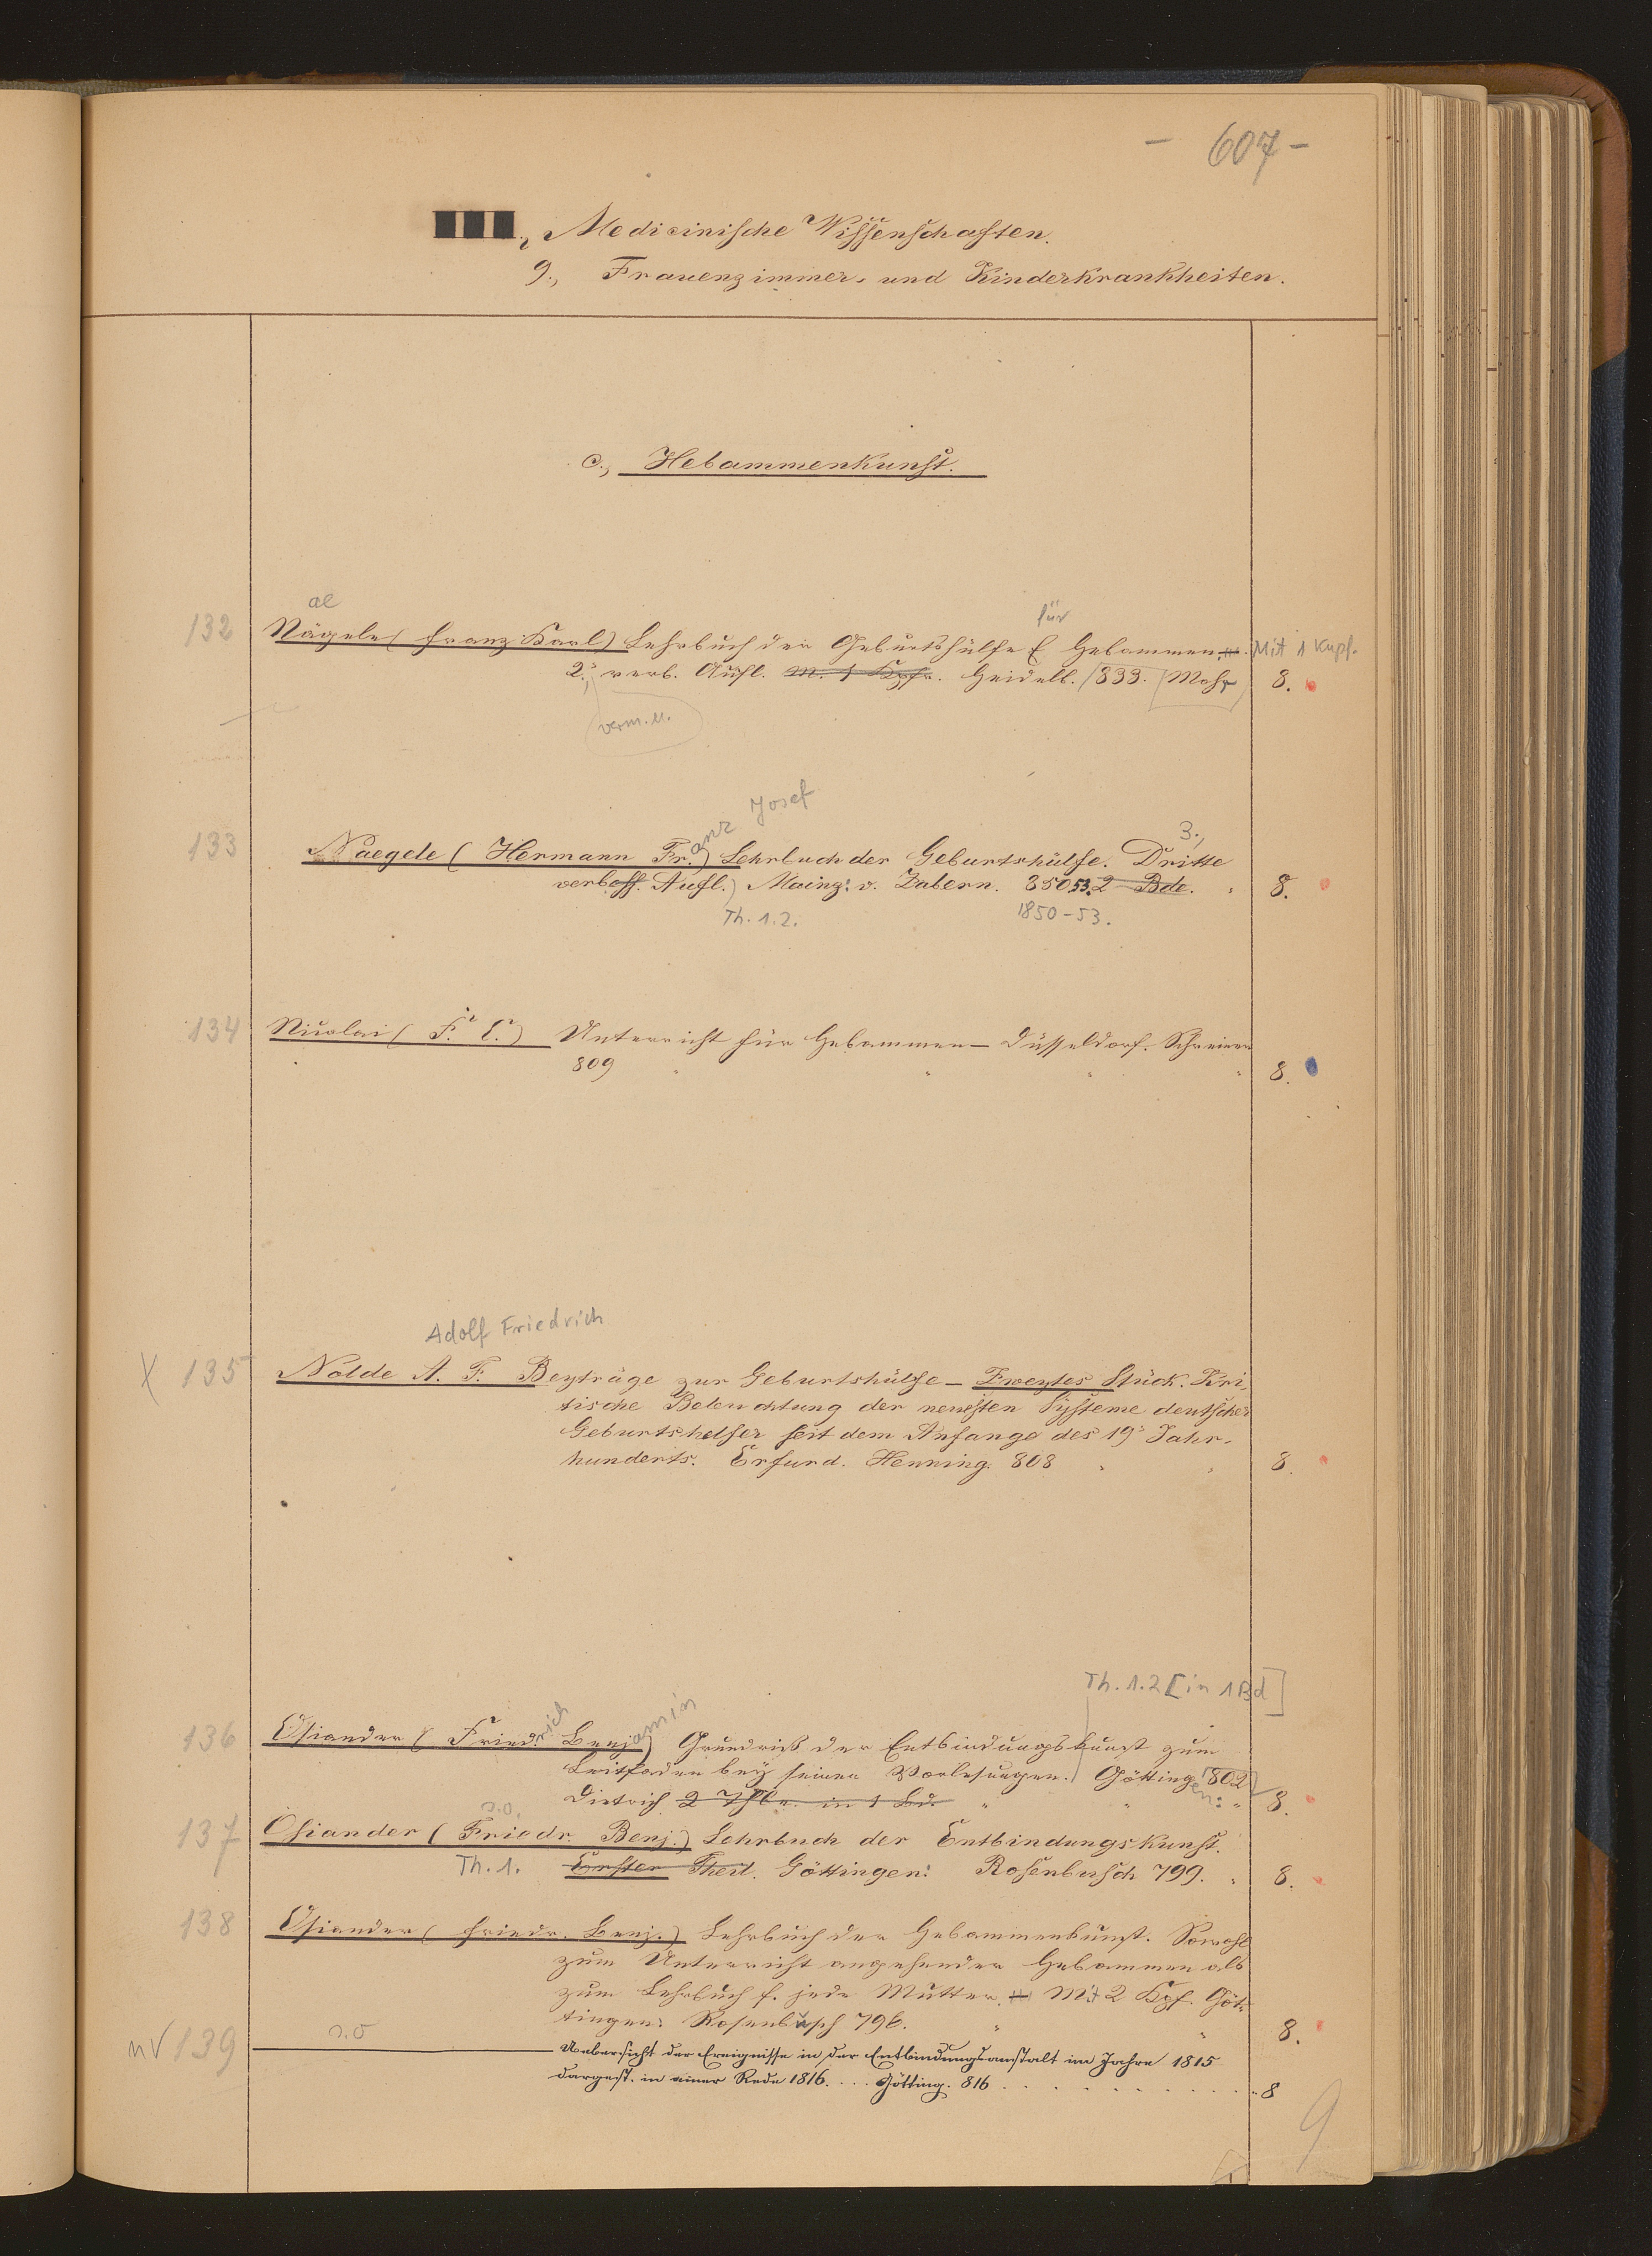 - 607 -
Medicinische Wissenschaften.
9., Frauenzimmer- und Kinderkrankheiten.
c., Hebammenkunst.
ae
für
132 Nägele (Franz Karl) Lehrbuch der Geburtshülfe f. Hebammen. Mit 1 Kupf.
2.' verb. Aufl. m. 1 Kpfr. Heidelb. 833. Mohr 8.
verm. u.
anz Josef
3.,
133 Naegele (Hermann Fr.) Lehrbuch der Geburtshülfe. Dritte
verbess. Aufl.) Mainz: v. Zabern. 850 53. 2 Bde. 8.
Th. 1.2. 1850-53.
134 Nicolai (F. E.) Unterricht für Hebammen – Düsseldorf. Schreiner
809 8.
Adolf Friedrich
X 135 Nolde A. F. Beyträge zur Geburtshülfe – Zweytes Stück. Kri-
tische Beleuchtung der neuesten Systeme deutscher
Geburtshelfer seit dem Anfange des 19' Jahr-
hunderts. Erfurd. Henning. 808 8.
Th. 1.2 [in 1 Bd]
rich amin
136 Osiander (Friedr. Benj.) Grundriß der Entbindungskunst zum
Leitfaden bey seinen Vorlesungen. Götting en: 802
Dietrich 2 Thle. in 1 Bd. 8.
s.o.
137 Osiander (Friedr. Benj.) Lehrbuch der Entbindungskunst.
Th. 1. Erster Theil. Göttingen: Rosenbusch 799. 8.
138 Osiander (Friedr. Benj.) Lehrbuch der Hebammenkunst. Sowohl
zum Unterricht angehender Hebammen als
zum Lehrbuch f. jede Mutter. Mit 2 Kpf. Göt-
tingen: Rosenbusch 796. 8.
nV 139 s.o Uebersicht der Ereignisse in der Entbindungsanstalt im Jahre 1815
dargest. in einer Rede 1816. . . . Götting. 816 8
9